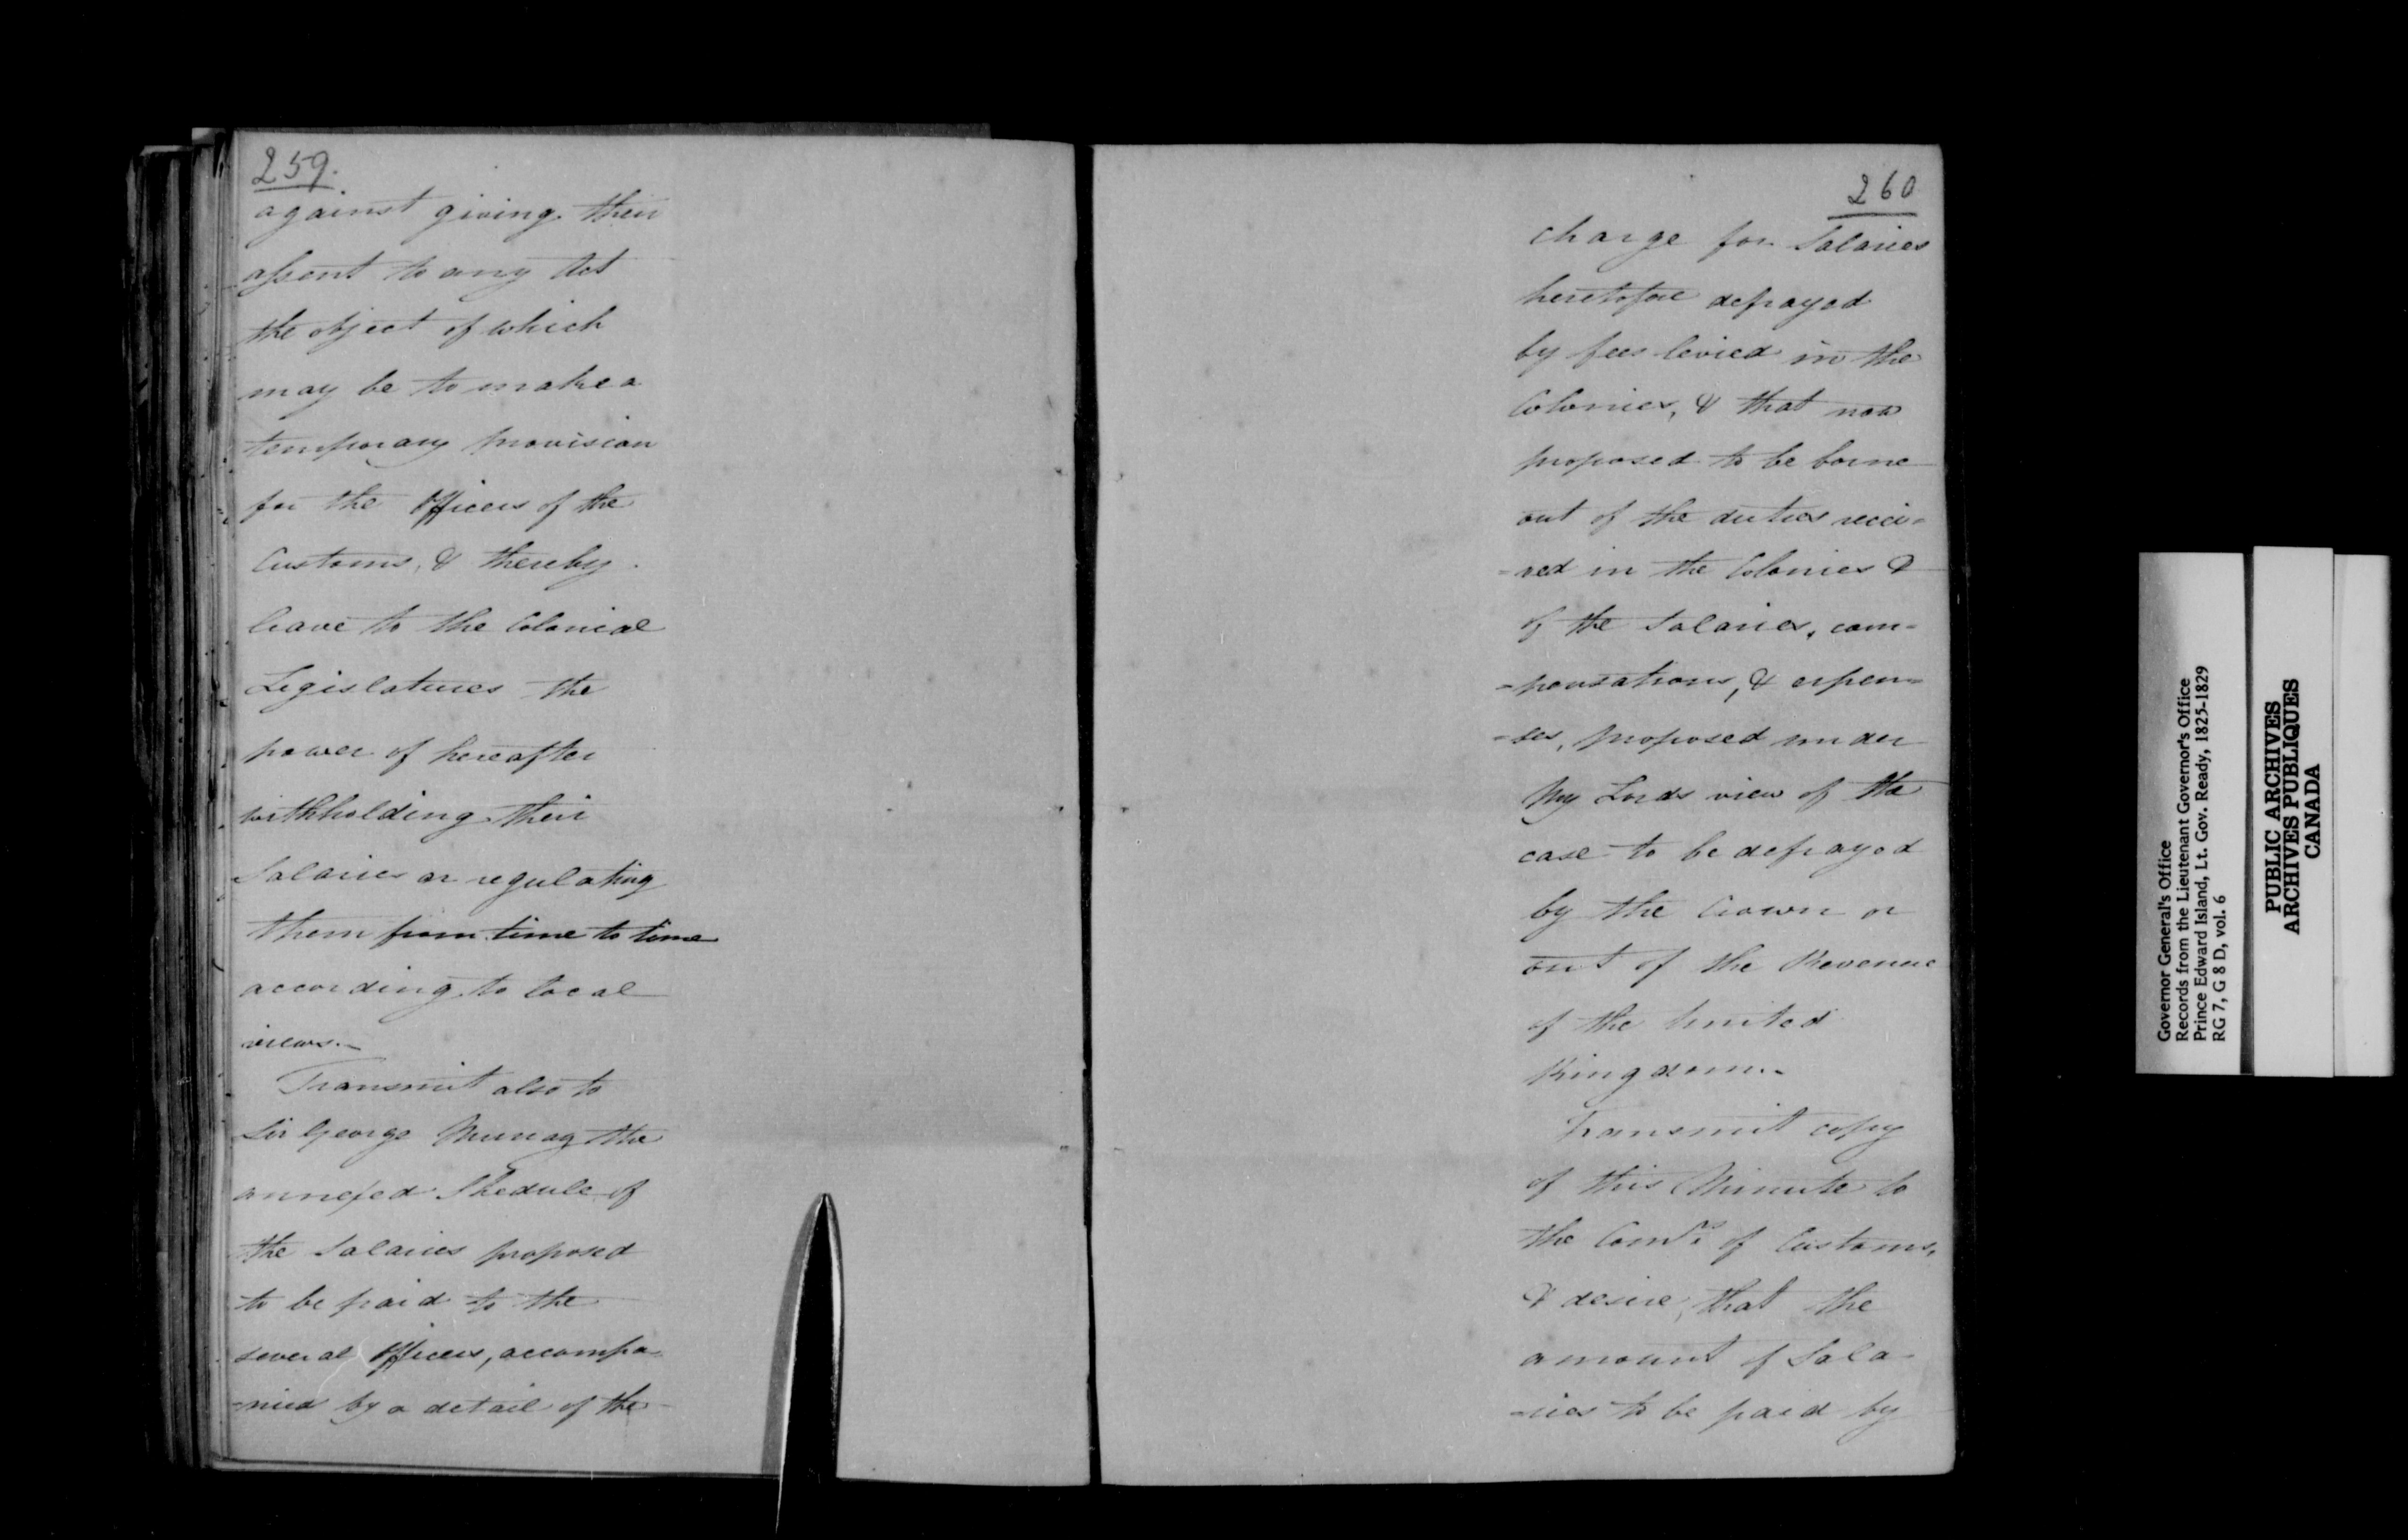 259.
against giving their
assent to any Act
the object of which
may be to make a
temporary provision
for the Officers of the
Customs, & thereby
leave to the Colonial
Legislatures the
power of hereafter
withholding their
Salaries or regulating
them from time to time
according to local
views.-
Transmit also to
Sir George Murray the
annexed Shedule of
the Salaries proposed
to be paid to the
several Officers, accompa-
-nied by a detail of the
260
charge for Salaries
heretofore defrayed
by fees levied in the
Colonies, & that now
proposed to be borne
out of the duties recei=
=ved in the Colonies &
of the Salaries, com=
=pensations, & expen=
=ses, proposed under
My Lords view of the
case to be defrayed
by the Crown or
out of the Revenue
of the United
Kingdom.-
Transmit copy
of this Minute to
the Comrs. of Customs,
& desire, that the
amount of Sala-
-ries to be paid by
Governor General's Office
Records from the Lieutenant Governor's Office
Prince Edward Island, Lt. Gov. Ready, 1825-1829
RG 7, G 8 D, vol. 6
PUBLIC ARCHIVES
ARCHIVES PUBLIQUES
CANADA